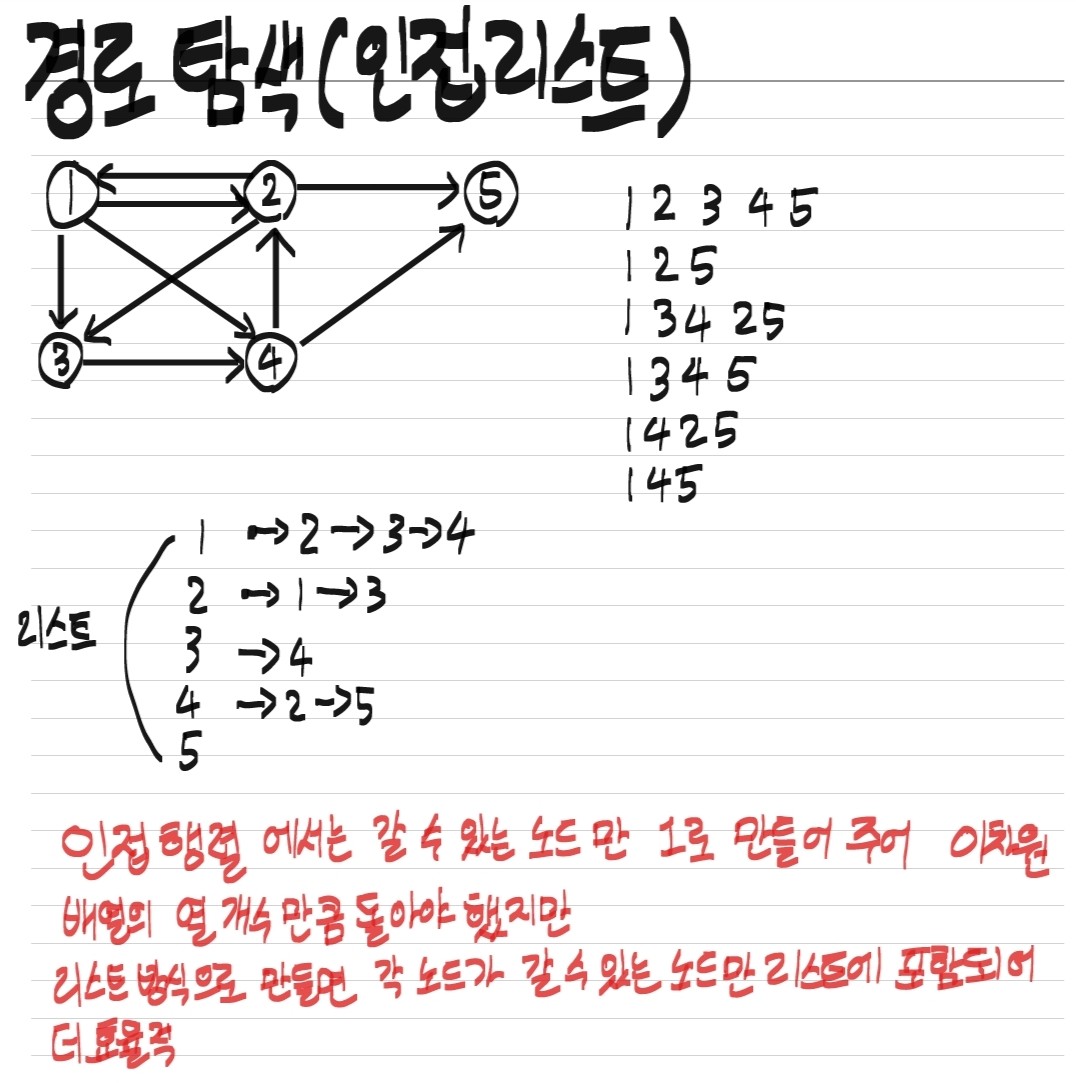 경로 탐색(인접리스트)
1 2 5
3 4
1 2 3 4 5
1 2 5
1 3 4 2 5
1 3 4 5
1 4 2 5
1 4 5
리스트
1 → 2 → 3 → 4
2 → 1 → 3
3 → 4
4 → 2 → 5
5
인접행렬 에서는 갈 수 있는 노드 만 1로 만들어 주어 이차원
배열의 열 개수 만큼 돌아야 했지만
리스트 방식으로 만들면 각 노드가 갈 수 있는 노드만 리스트에 포함되어
더 효율적